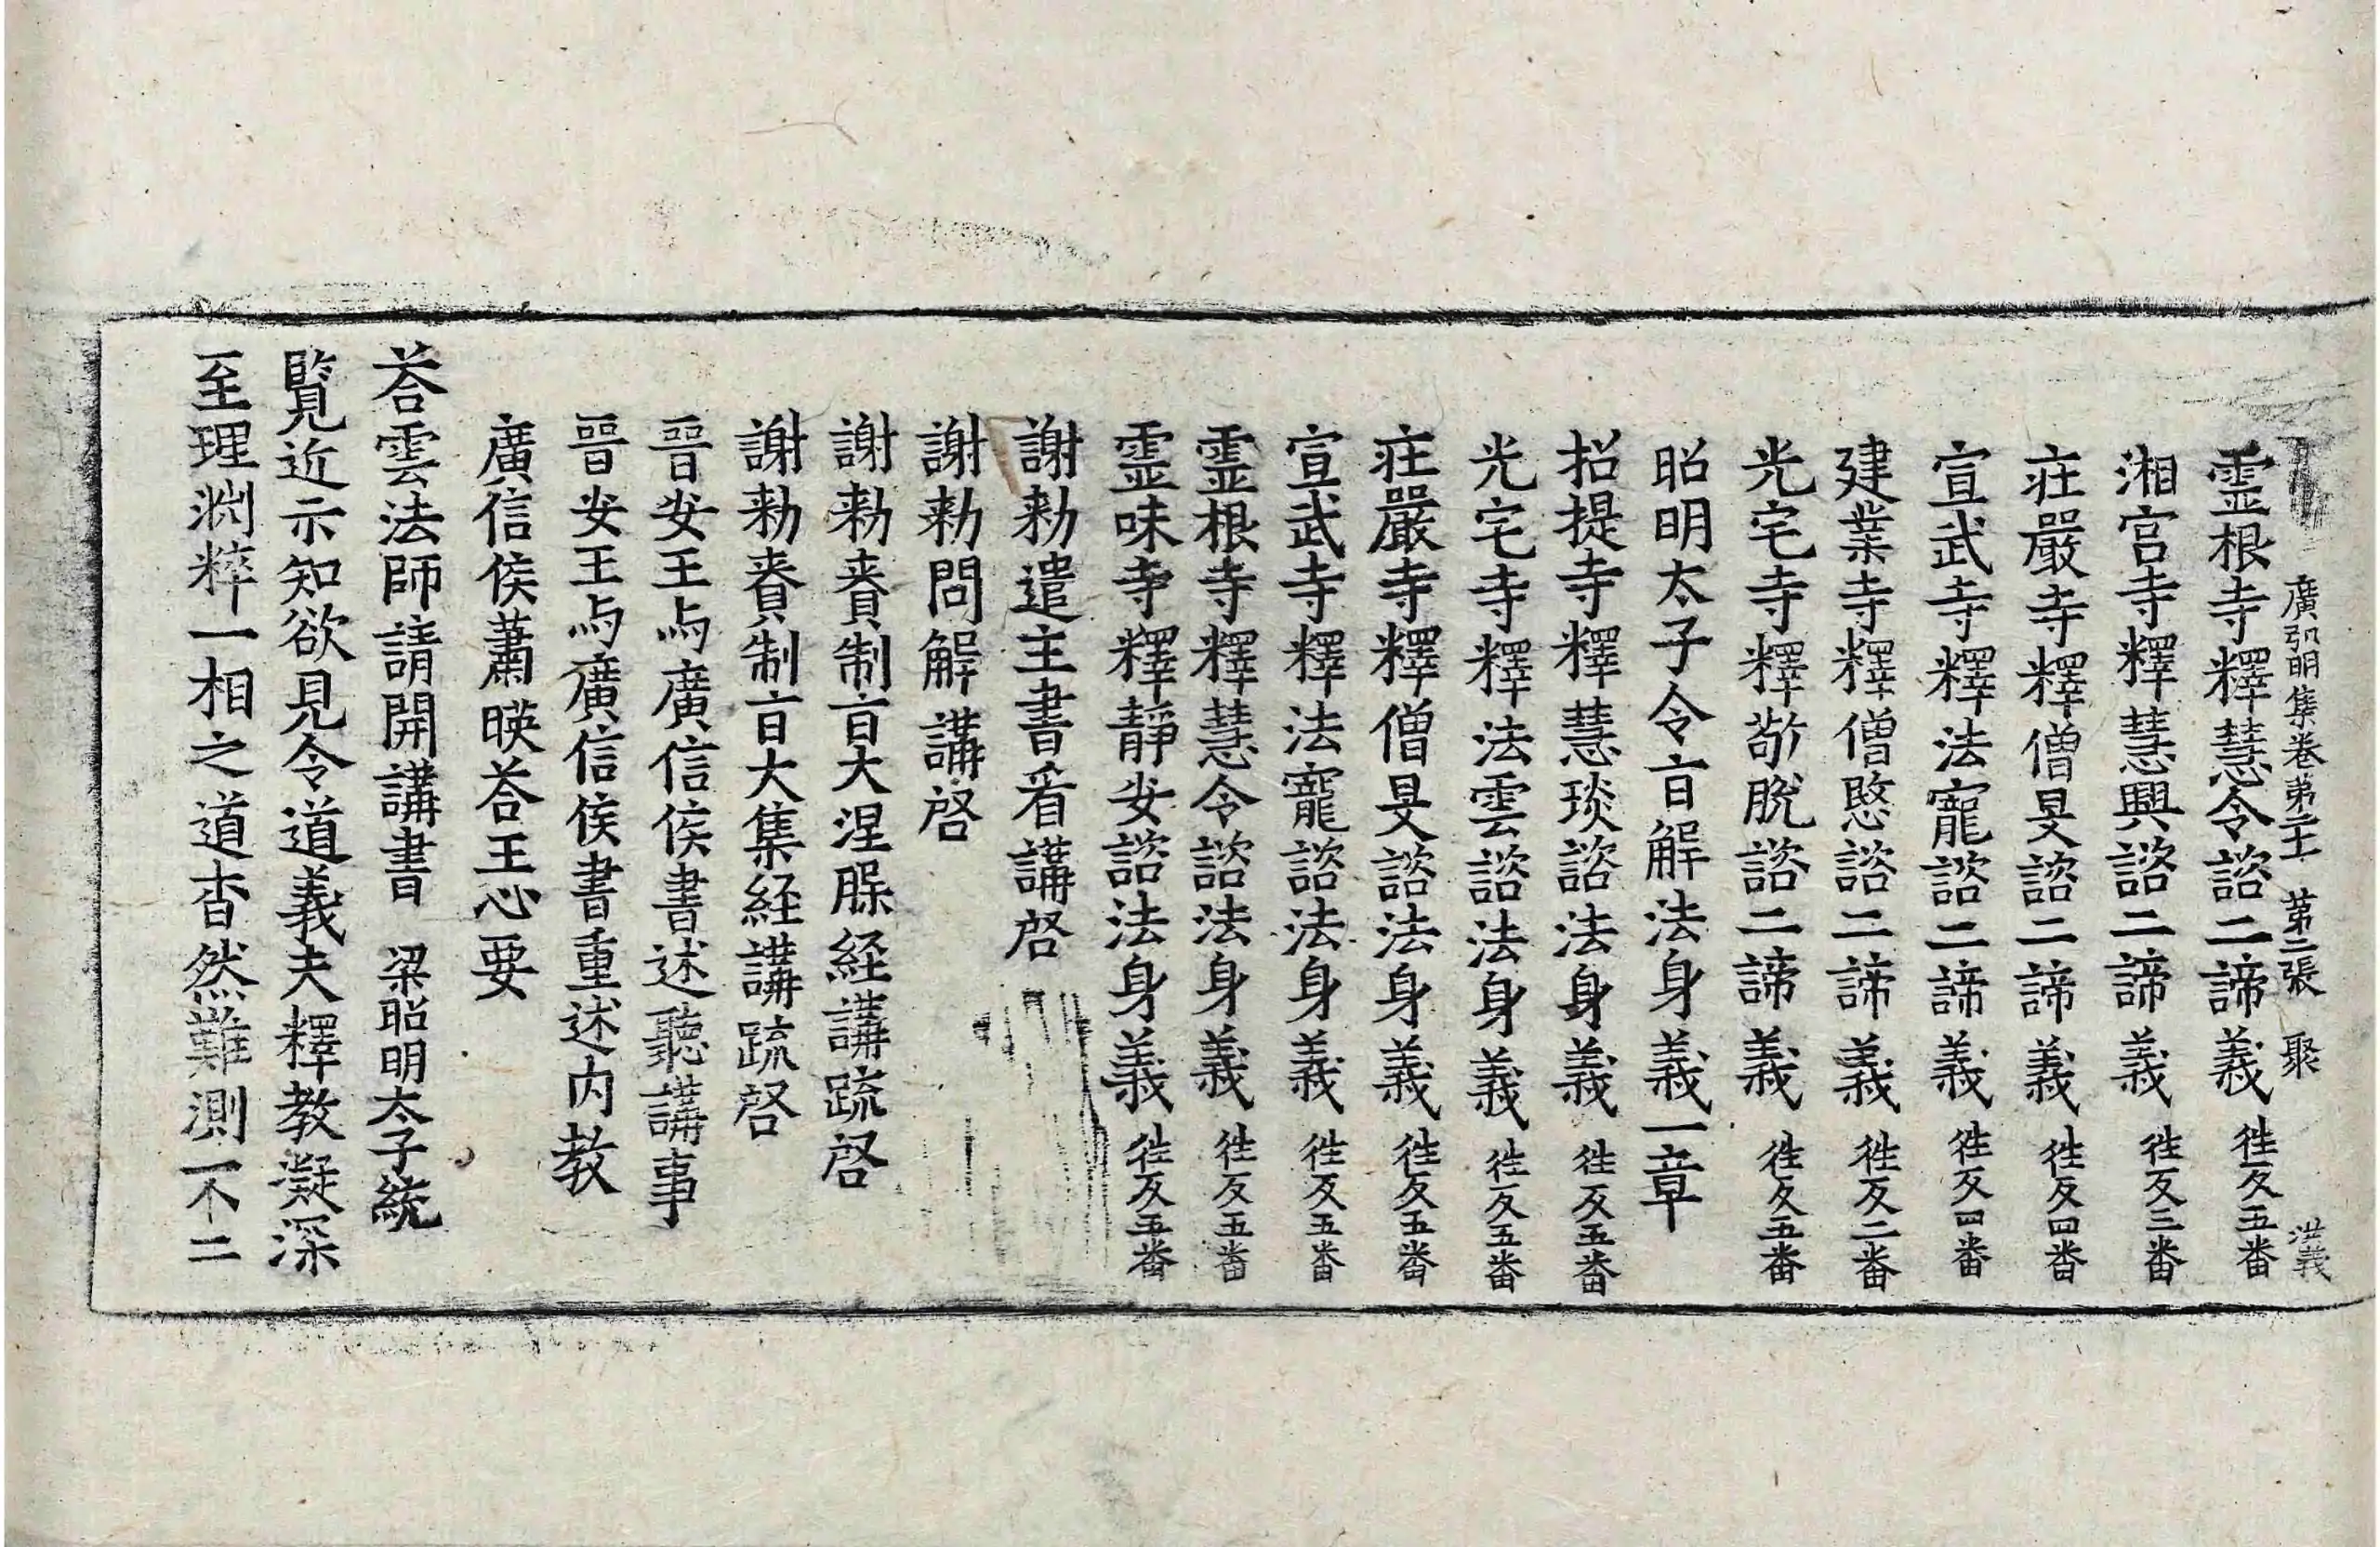 廣弘明集卷第二十 第二張 聚 洪義
霊根寺釋慧令諮二諦義 徃反五畨
湘宫寺釋慧興諮二諦義 徃反三畨
莊嚴寺釋僧旻諮二諦義 徃反四畨
宣武寺釋法寵諮二諦義 徃反四畨
建業寺釋僧愍諮二諦義 徃反二畨
光宅寺釋敬脫諮二諦義 徃反五畨
昭明太子令㫖解法身義一章
招提寺釋慧琰諮法身義 徃反五畨
光宅寺釋法雲諮法身義 徃反五畨
莊嚴寺釋僧旻諮法身義 徃反五畨
宣武寺釋法寵諮法身義 徃反五畨
霊根寺釋慧令諮法身義 徃反五畨
霊味寺釋靜安諮法身義 徃反五畨
謝勑遣主書看講啓
謝勑問解講啓
謝勑賚制㫖大涅槃経講疏啓
謝勑賚制㫖大集経講疏啓
晉安王与廣信侯書述聽講事
晉安王与廣信侯書重述内教
廣信侯蕭暎荅王心要
荅雲法師請開講書 梁昭明太子統
覽近示知欲見令道義夫釋教凝深
至理渊粹一相之道杳然難測不二